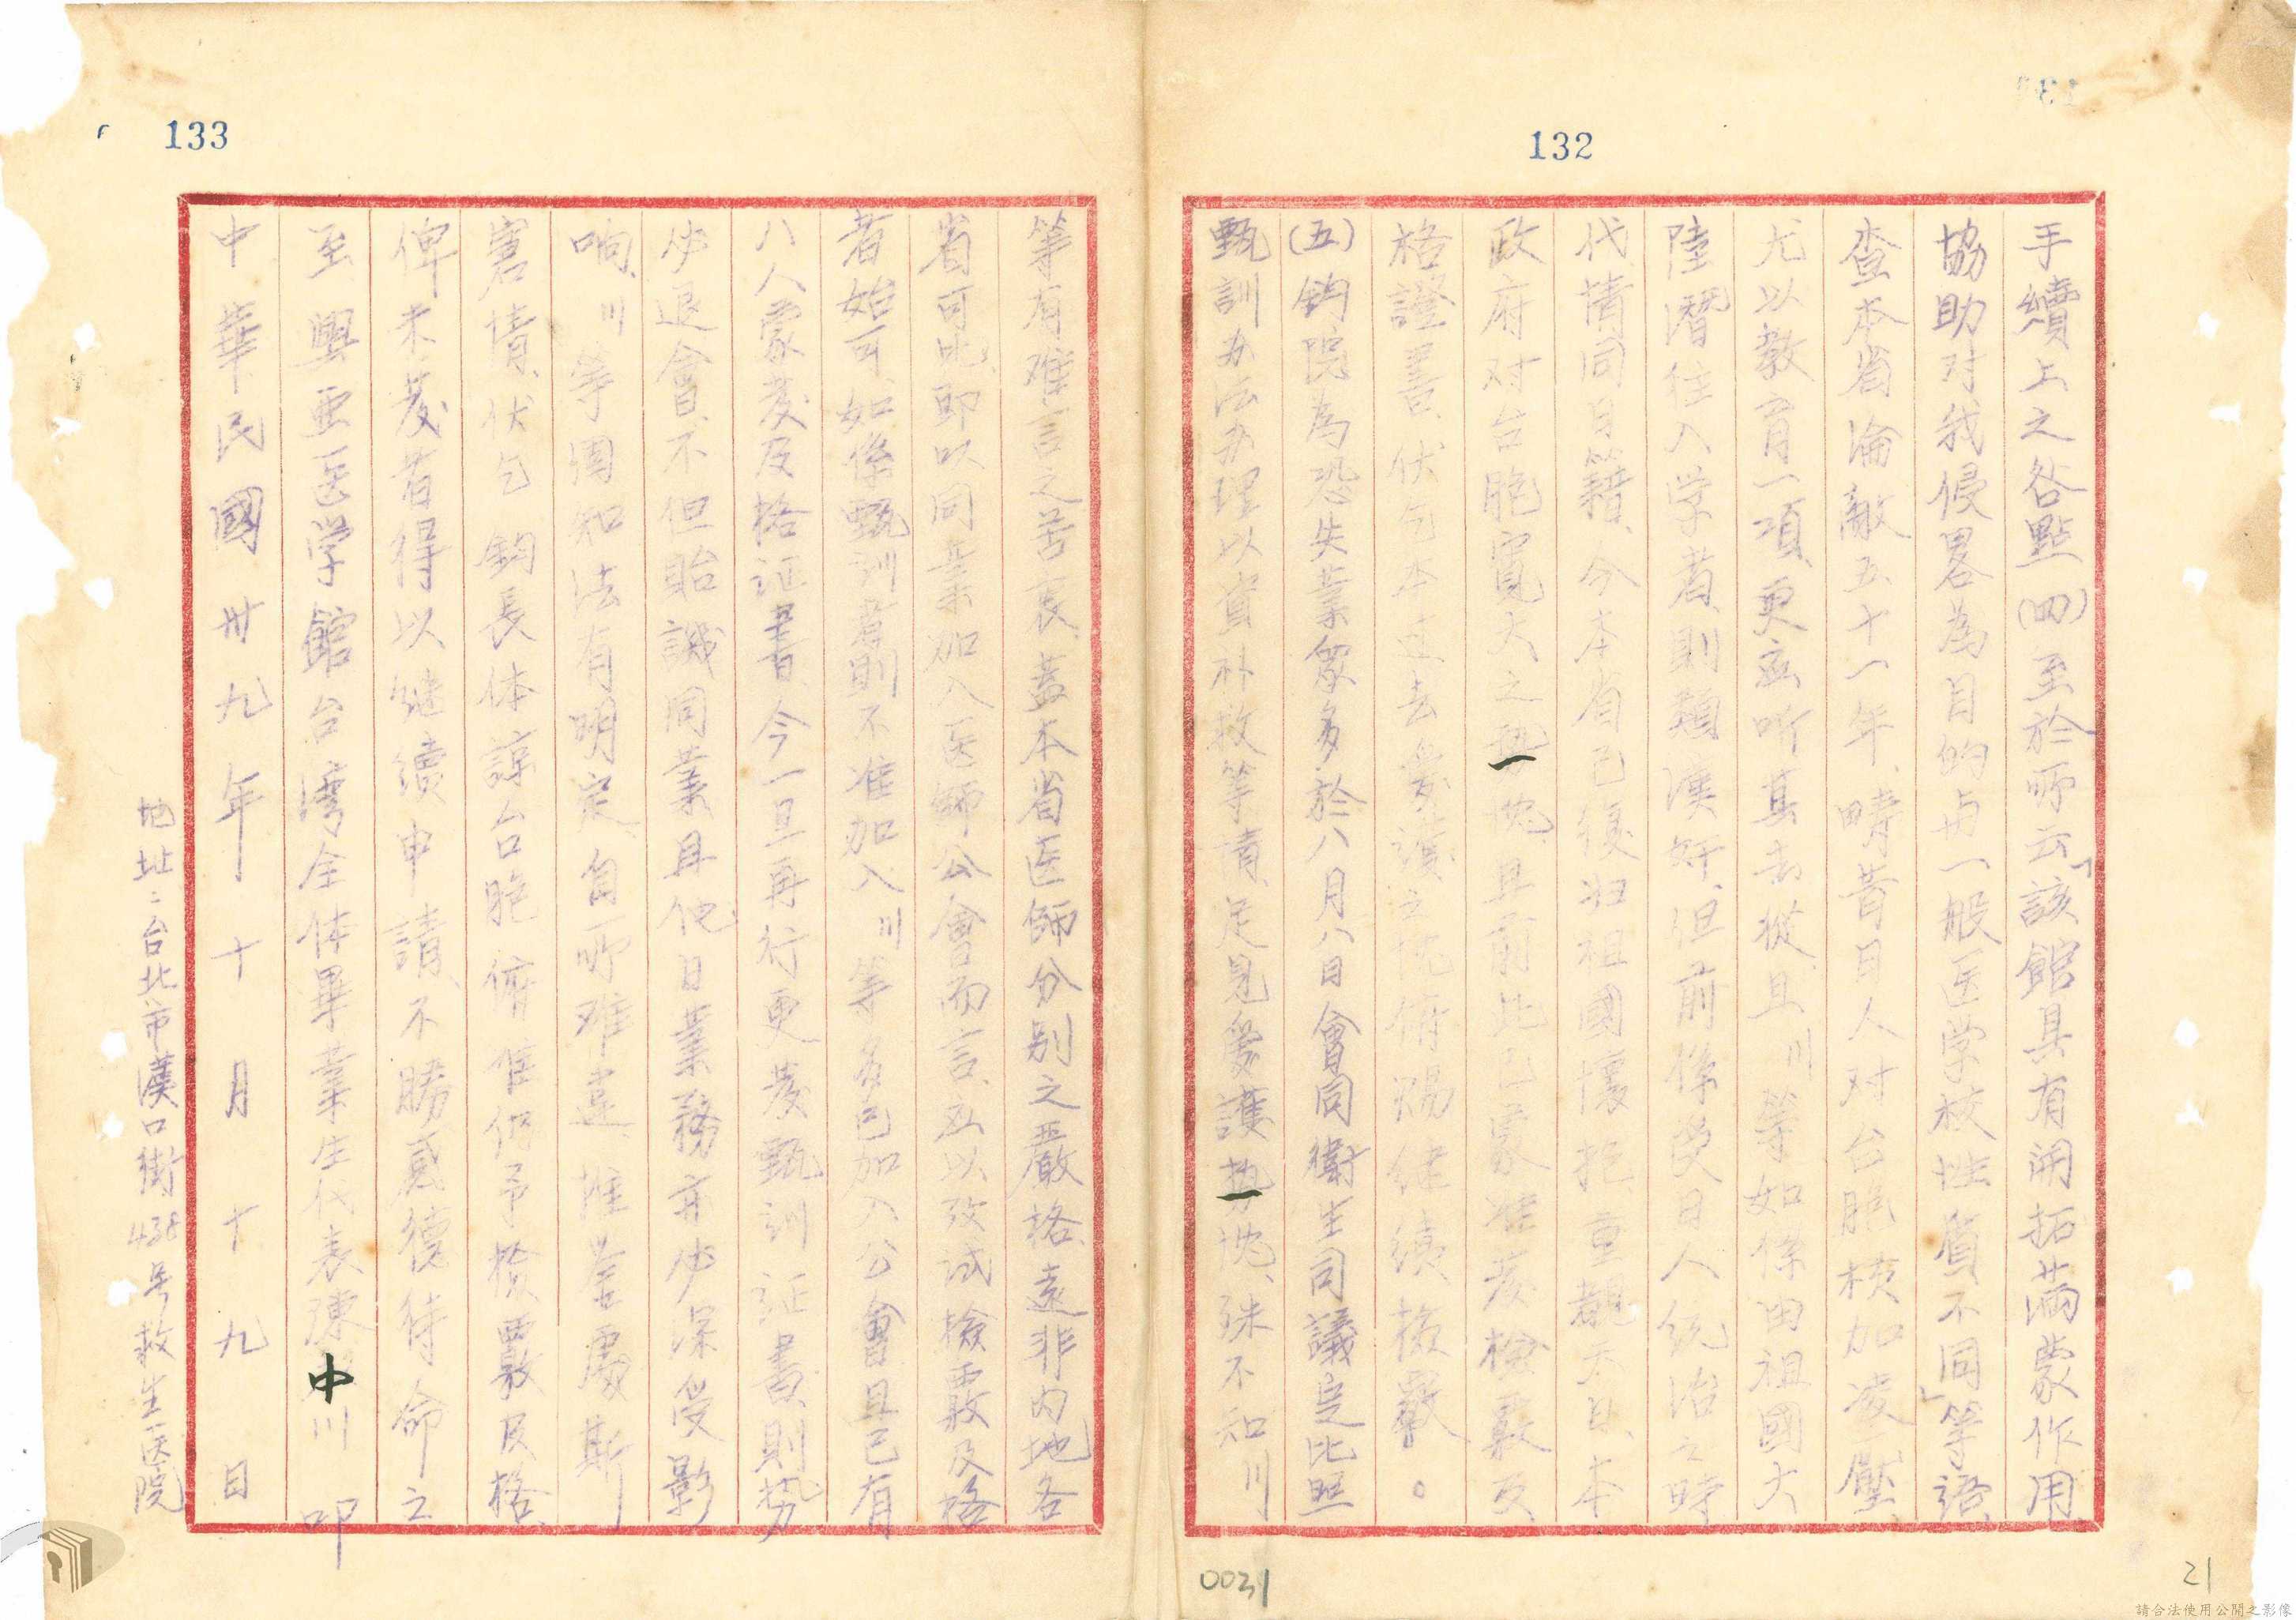 132
手續上之各點(四)至於所云「該館具有開拓滿蒙作用
協助对我侵畧為目的与一般医学校性質不同」等語、
查本省淪敵五十一年、疇昔日人对台胞横加凌壓、
尤以教育一項、更㤀听其去從、且川等如係由祖國大
陸潛往入学者、則類漢奸、但前係受日人統治之時
代、情同日籍、今本省已復归祖國懷抱、重覩天日、本
政府对台胞寬大之熱忱、且前此已蒙准發檢覈及
格證書、伏乞本过去愛護之忱俯賜継續檢覈。
(五)鈞院為恐失業眾多、於八月八日會同衛生司議定比照
甄訓办法办理以資補救等情、足見愛護热忱、殊不知川
133
等有难言之苦衷、蓋本省医師分别之嚴格、遠非内地各
省可比、即以同業加入医師公會而言、必以攷試檢覈及格
者始可、如係甄訓者則不准加入、川等多已加入公會、且已有
八人蒙發及格证書、今一旦再行更發甄訓证書、則势
必退會、不但貽譏同業、且他日業務亦必深受影
响、川等固知法有明定、自所难違、惟鉴處斯
窘情、伏乞 鈞長体諒台胞俯准仍予檢覈及格、
俾未發者得以継續申請、不勝感德待命之
至 興亜医学館台湾全体畢業生代表陳中川 叩
中華民國卅九年十月十九日
地址：台北市漢口街438号救生医院
0031
21
請合法使用公開之影像